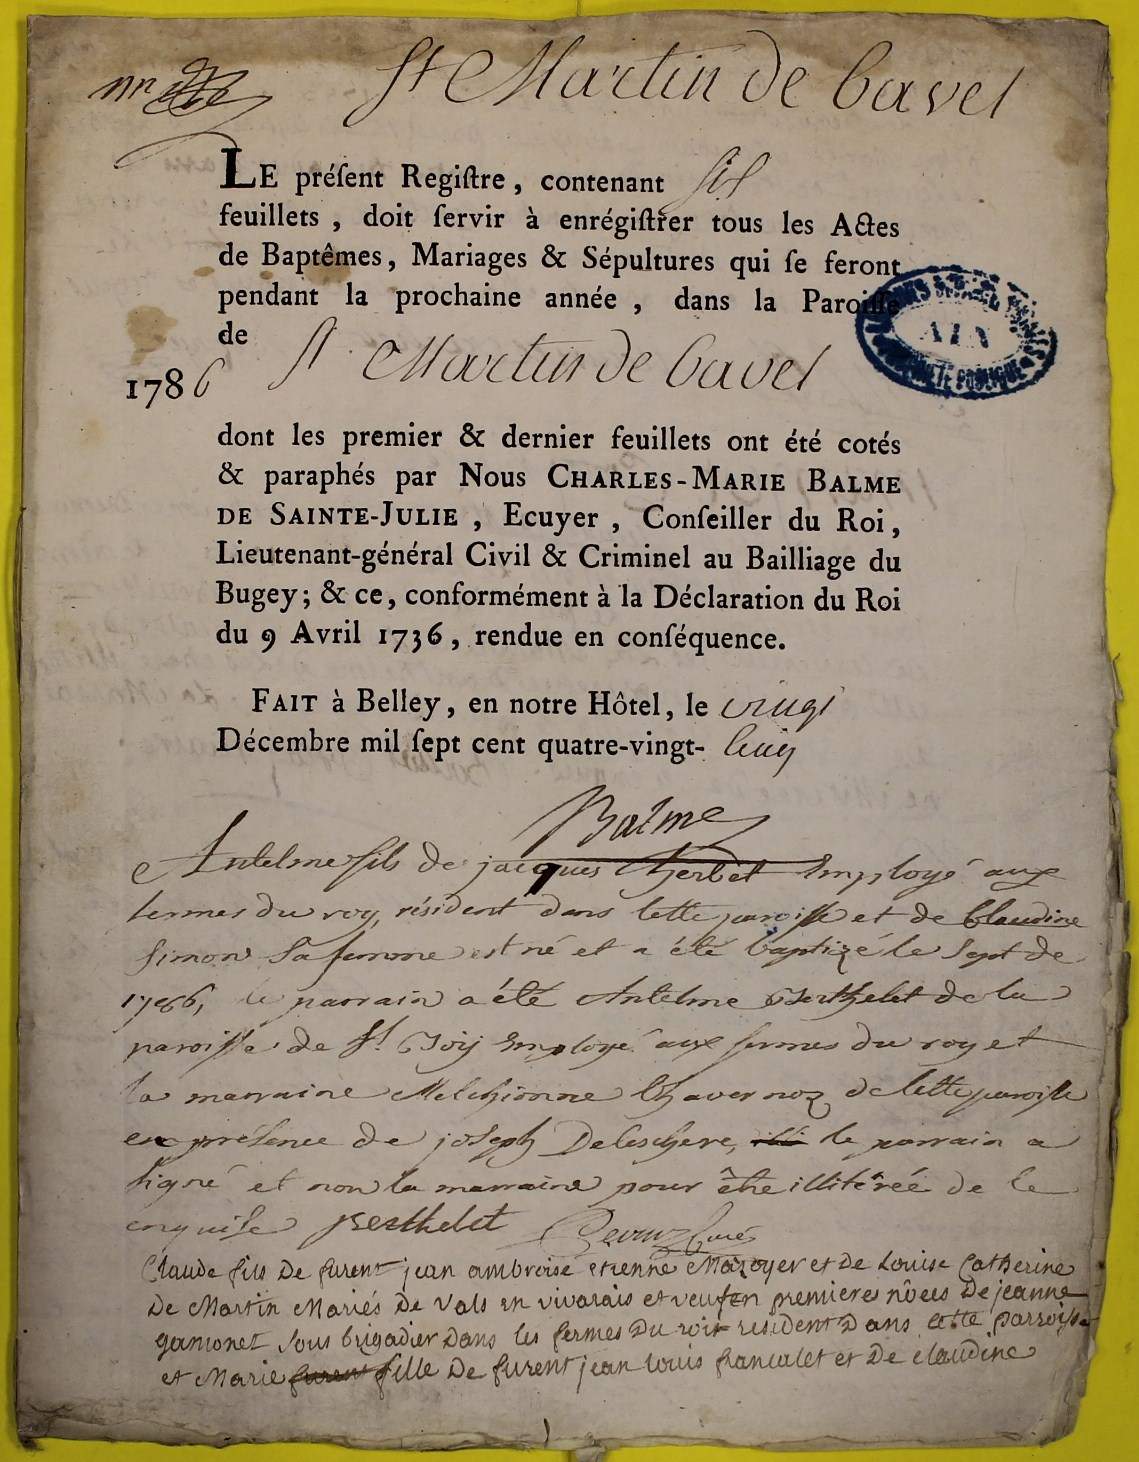 St Martin de bavel
LE préſent Regiſtre, contenant six
feuillets, doit ſervir à enrégiſtrer tous les Actes
de Baptêmes, Mariages & Sépultures qui ſe feront
pendant la prochaine année, dans la Paroiſſe
de St. Martin de bavel
1786
AIN
dont les premier & dernier feuillets ont été cotés
& paraphés par Nous CHARLES-MARIE BALME
DE SAINTE-JULIE, Ecuyer, Conſeiller du Roi,
Lieutenant-général Civil & Criminel au Bailliage du
Bugey; & ce, conformément à la Déclaration du Roi
du 9 Avril 1736, rendue en conſéquence.
FAIT à Belley, en notre Hôtel, le vingt
Décembre mil ſept cent quatre-vingt- cinq
Balme
Antelme fils de jacques Employé aux
fermes du roy, résident dans cette paroisse et de Claudine
simon sa femme est né et a été baptizé le sept de
1786, le parrain a été Antelme Berthelet de la
paroisse de St. Employé aux fermes du roy et
la marraine Melchionne Chavernoz de cette paroisse
en présence de joseph Deleschere, le parrain a
signé et non la marraine pour être illitérée de ce
enquise Berthelet curé
Claude fils De furent jean ambroise etienne Mazoyer et De Louise Catherine
De Martin Mariés De Vals en vivarais et veuf en premieres nôces De jeanne
gamonet sous brigadier Dans les fermes Du roi resident Dans cette parroisse
et Marie furent fille De furent jean louis francalet et De claudine